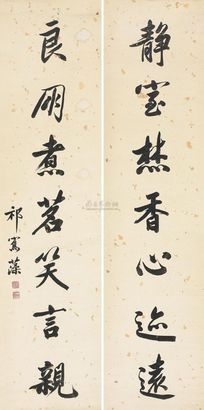 静室焚香心迹遠
良朋煮茗笑言親
祁寯藻